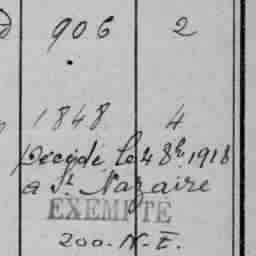 906 2
1848 4
Décédé le 4 8bre 1918
a St Nazaire
EXEMPTÉ
200. N. E.